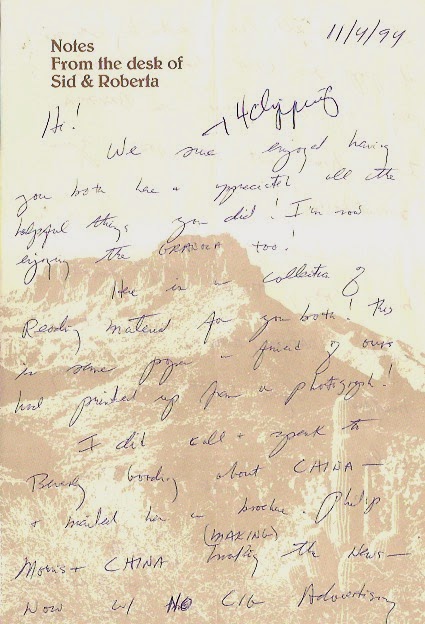 11/4/94
Notes
From the desk of
Sid & Roberta
+ 4 clippings
Hi!
We sure enjoyed having
you both here + appreciated all the
helpful things you did! I'm now
enjoying the GRANOLA too!
Here is a collection of
Reading material for you both! This
is some paper a friend of ours
had printed up from a photograph!
I did call + speak to
Beverly about CHINA —
+ mailed her a brochure. Philip
Morris + CHINA (MAKING) the News —
Now w/ NO CIG Advertising